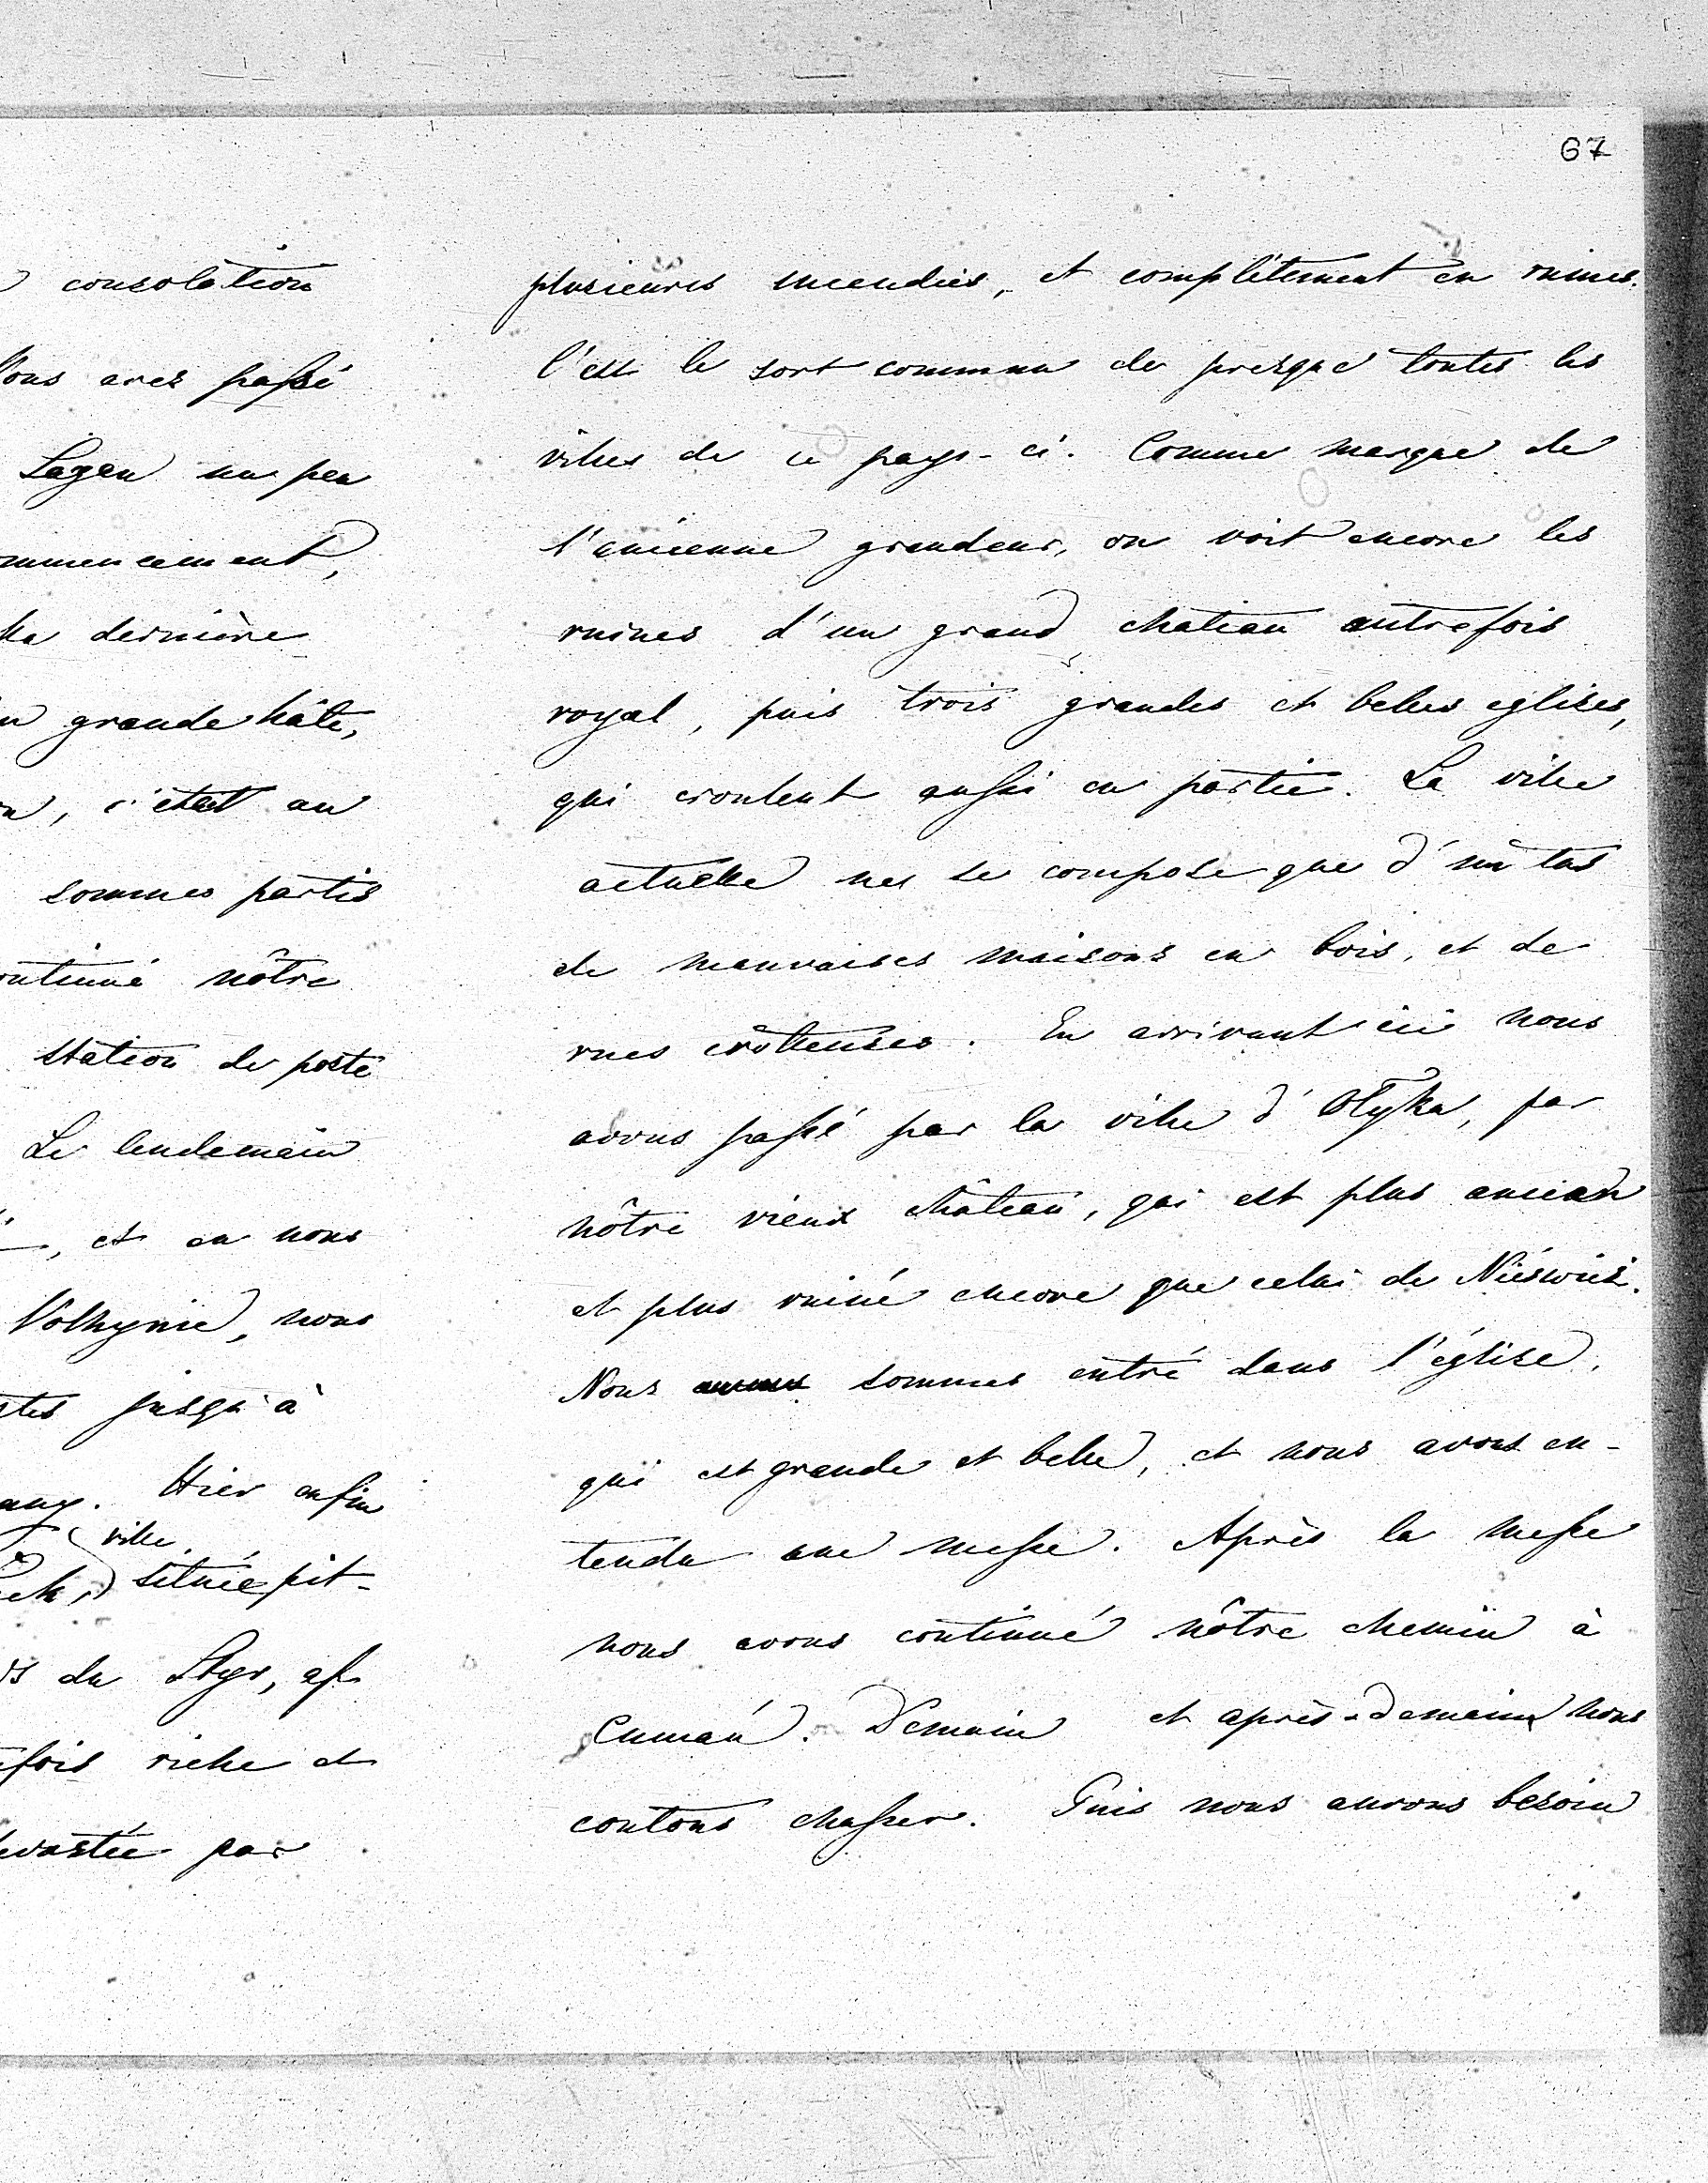 67
consolation
Vous avez passé
Lagen un peu
ommencement,
ka dernière
grande hâte,
, c'était au
sommes partis
ontinué nôtre
station de poste
Le lendemain
, et en nous
Volhynie, nous
stes jusqu'à
Hier enfin
ville
située pit-
du Styr, est
efois riche et
devastée par
plusieures incendies, et complétement en ruines.
C'est le sort commun de presque toutes les
villes de ce pays-ci. Comme marque de
l'ancienne grandeur, on voit encore les
ruines d'un grand chateau autrefois
royal, puis trois grandes et belles eglises,
qui croulent aussi en partie. La ville
actuelle ne se compose que d'un tas
de mauvaises maisons en bois, et de
rues crôtteuses. En arrivant ici nous
avons passé par la ville d'Olyka, par
nôtre vieux château, qui est plus ancien
et plus ruiné encore que celui de Niéswież.
Nous sommes entré dans l'église,
qui est grande et belle, et nous avons en-
tendu une messe. Après la messe
nous avons continué nôtre chemin à
Cumań. Demain et après-demain nous
contons chasser. Puis nous aurons besoin